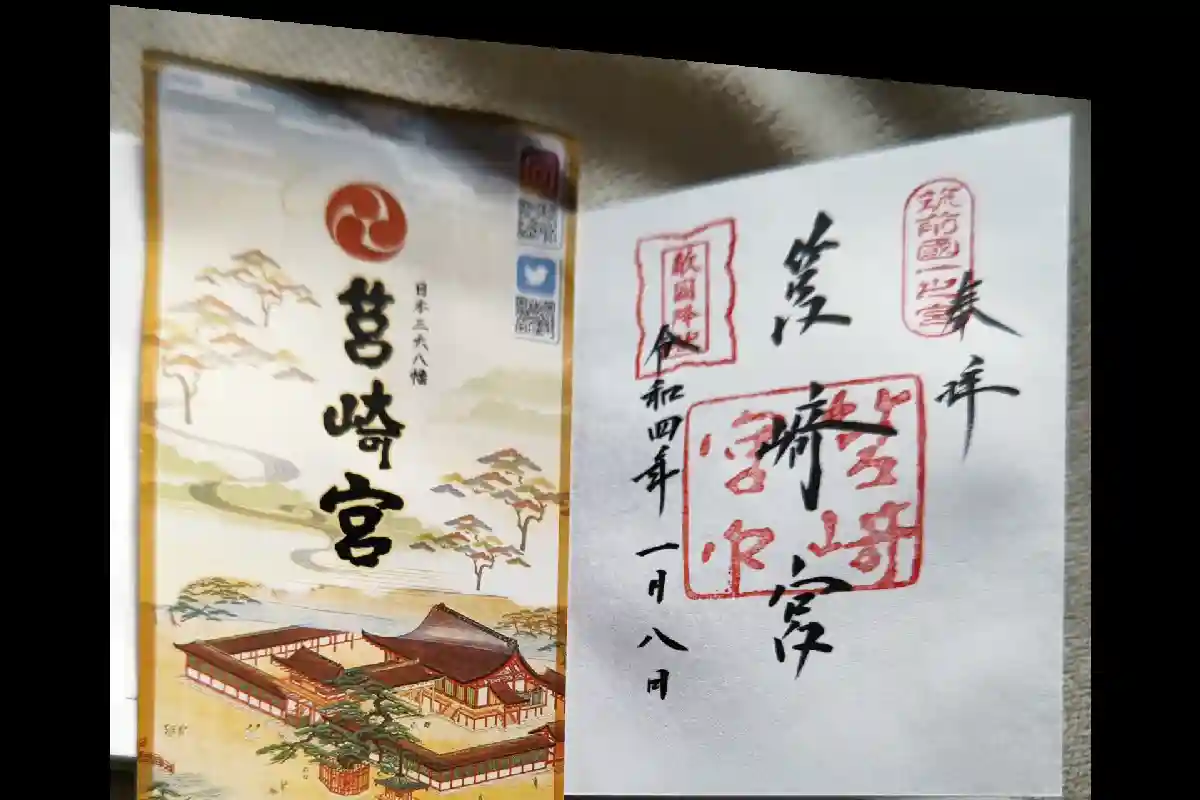 日本三大八幡
筥崎宮
筑前國一之宮
奉拝
筥崎宮
筥崎宮印
敵国降伏
令和四年一月八日